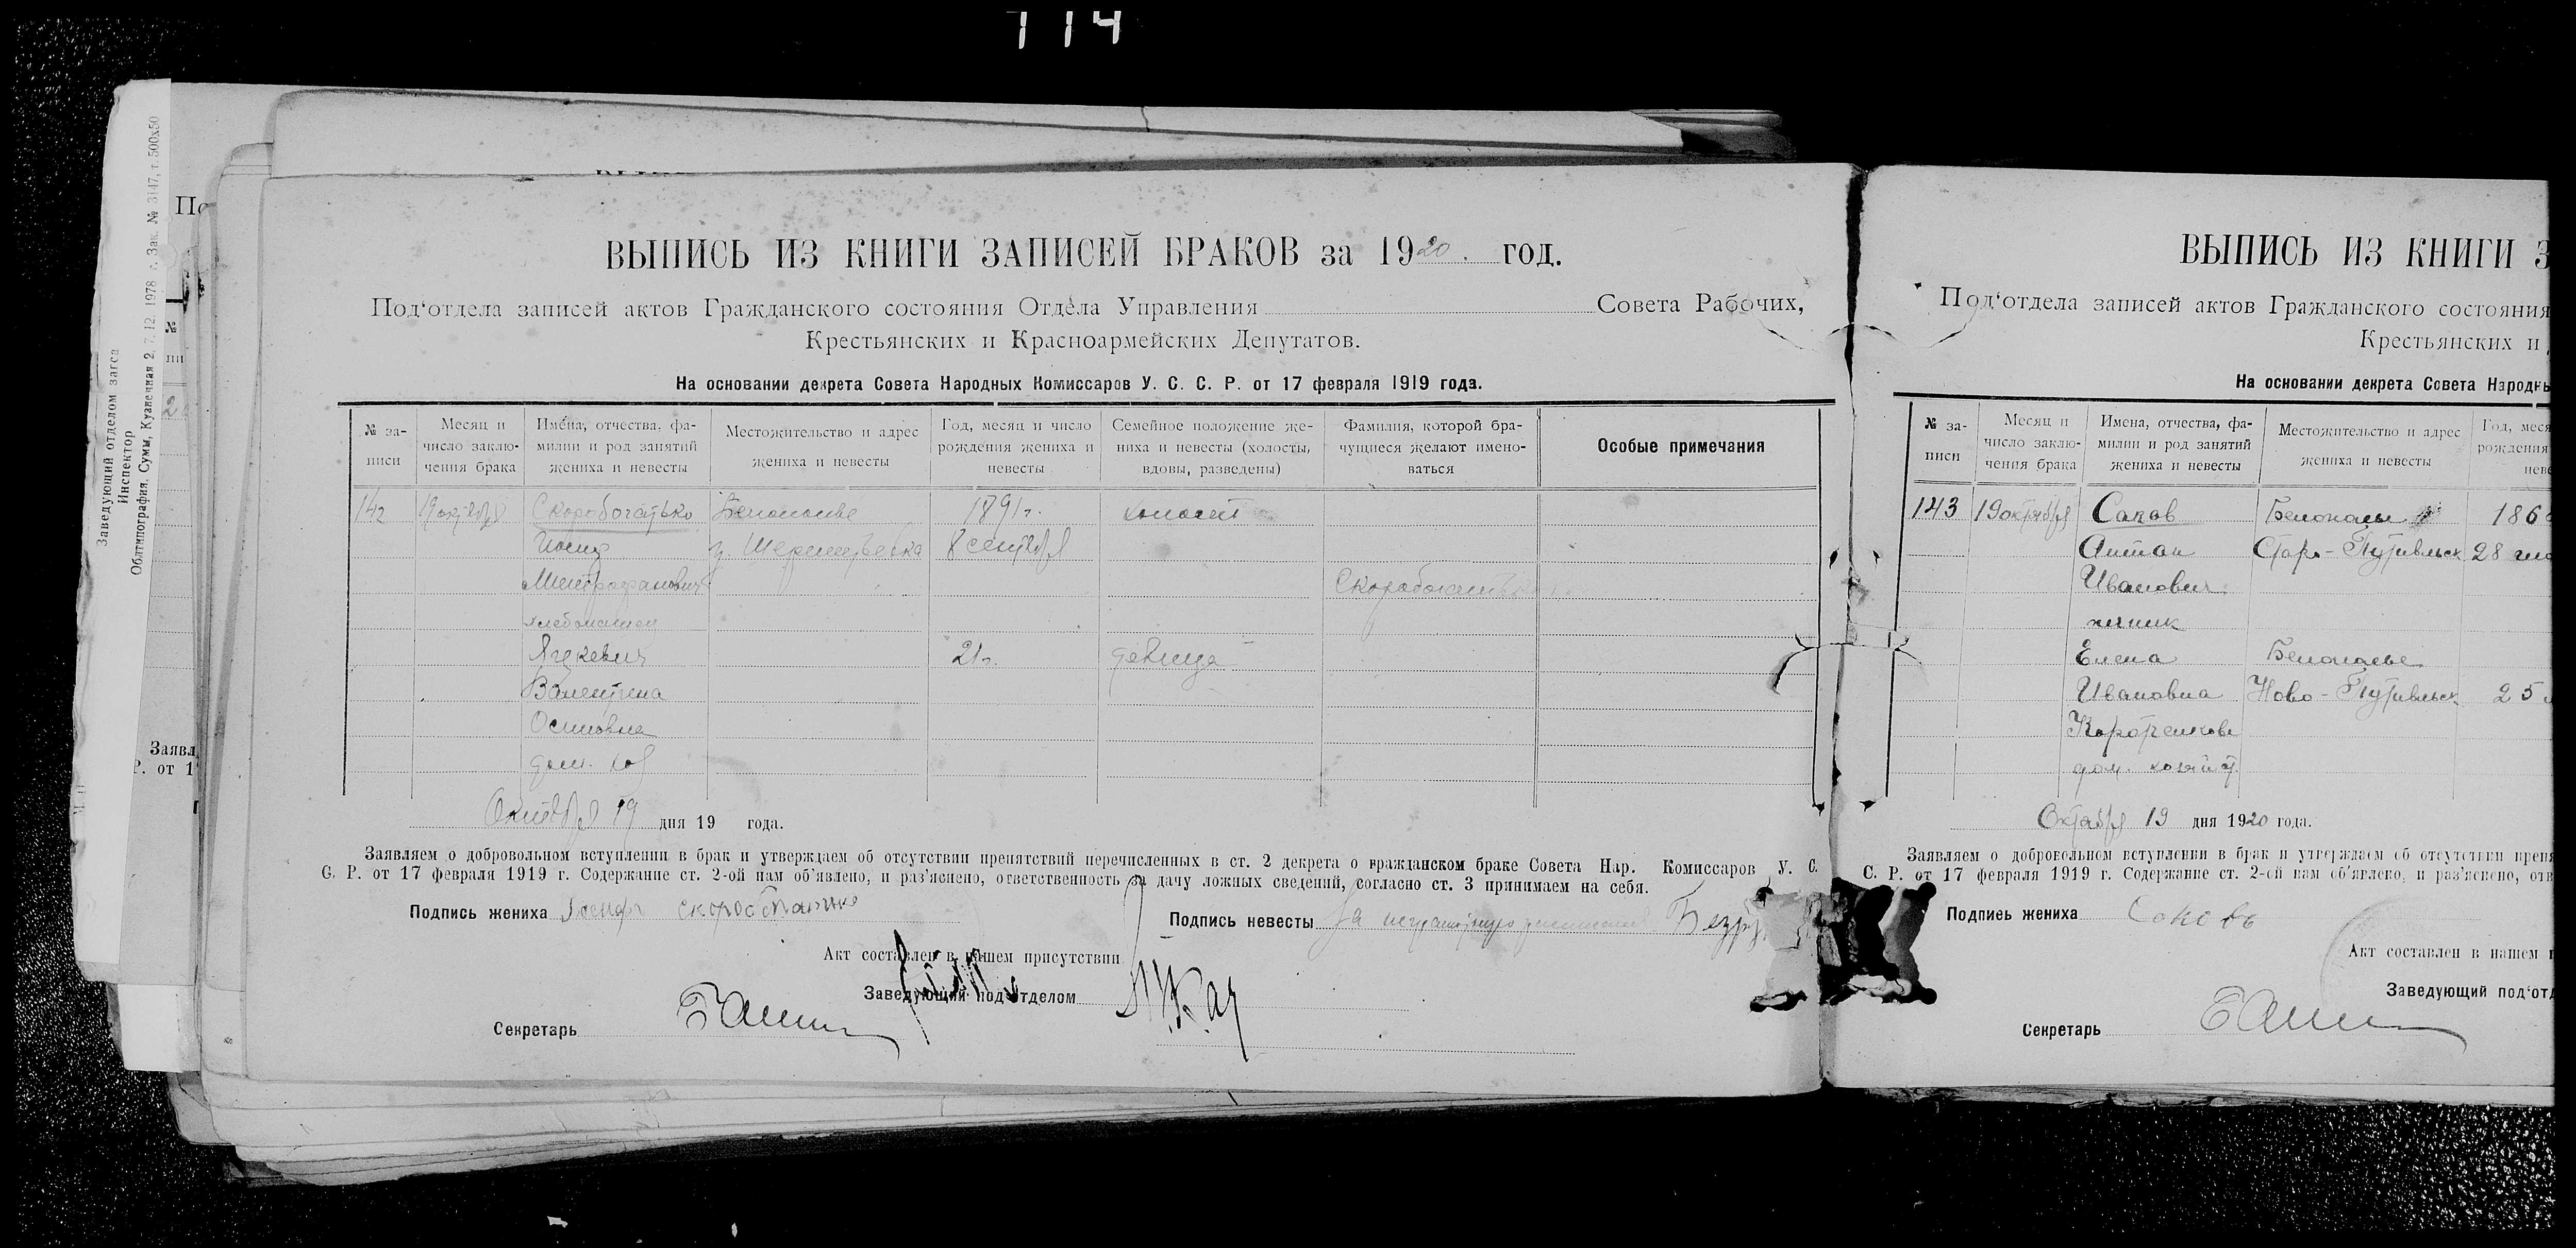 114
Заведующий отделом загса
Инспектор
Облтипография, Сумы, Кузнечная 2, 7.12.1978 г. Зак. № 3147, т. 500х50
По
№
пи
Заявл
Р. от 1
ВЫПИСЬ ИЗ КНИГИ ЗАПИСЕЙ БРАКОВ за 1920. год.
Под‘отдела записей актов Гражданского состояния Отдела Управления Совета Рабочих,
Крестьянских и Красноармейских Депутатов.
На основании декрета Совета Народных Комиссаров У. С. С. Р. от 17 февраля 1919 года.
№ записи
Месяц и число заключения брака
Имена, отчества, фамилии и род занятий жениха и невесты
Местожительство и адрес жениха и невесты
Год, месяц и число рождения жениха и невесты
Семейное положение жениха и невесты (холосты, вдовы, разведены)
Фамилия, которой брачущиеся желают именоваться
Особые примечания
142 19 октября Скоробогатько 1891 г. холост
Иосиф 8 сентября
Митрофанович
хлебопашец
21 г. девица
Валентина
Осиповна
Октября 19 дня 19 года.
Заявляем о добровольном вступлении в брак и утверждаем об отсутствии препятствий перечисленных в ст. 2 декрета о гражданском браке Совета Нар. Комиссаров У. С.
С. Р. от 17 февраля 1919 г. Содержание ст. 2-ой нам об’явлено, и раз’яснено, ответственность за дачу ложных сведений, согласно ст. 3 принимаем на себя.
Подпись жениха Подпись невесты За неграмотную
Акт составлен в нашем присутствии
Заведующий под‘отделом
Секретарь
ВЫПИСЬ ИЗ КНИГИ З
Под‘отдела записей актов Гражданского состояния
Крестьянских и
На основании декрета Совета Народны
№ записи
Месяц и число заключения брака
Имена, отчества, фамилии и род занятий жениха и невесты
Местожительство и адрес жениха и невесты
Год, меся
рождения
неве
143 19 октября Саков 186
Антон Старо-Путивльск 28
Иванович
Елена
Ивановна Ново-Путивльск 25
Октября 19 дня 1920 года.
Заявляем о добровольном вступлении в брак и утверждаем об отсутствии преп
С. Р. от 17 февраля 1919 г. Содержание ст. 2-ой нам об’явлено, и раз’яснено, отв
Подпись жениха Соковъ
Акт составлен в нашем п
Заведующий под‘отд
Секретарь